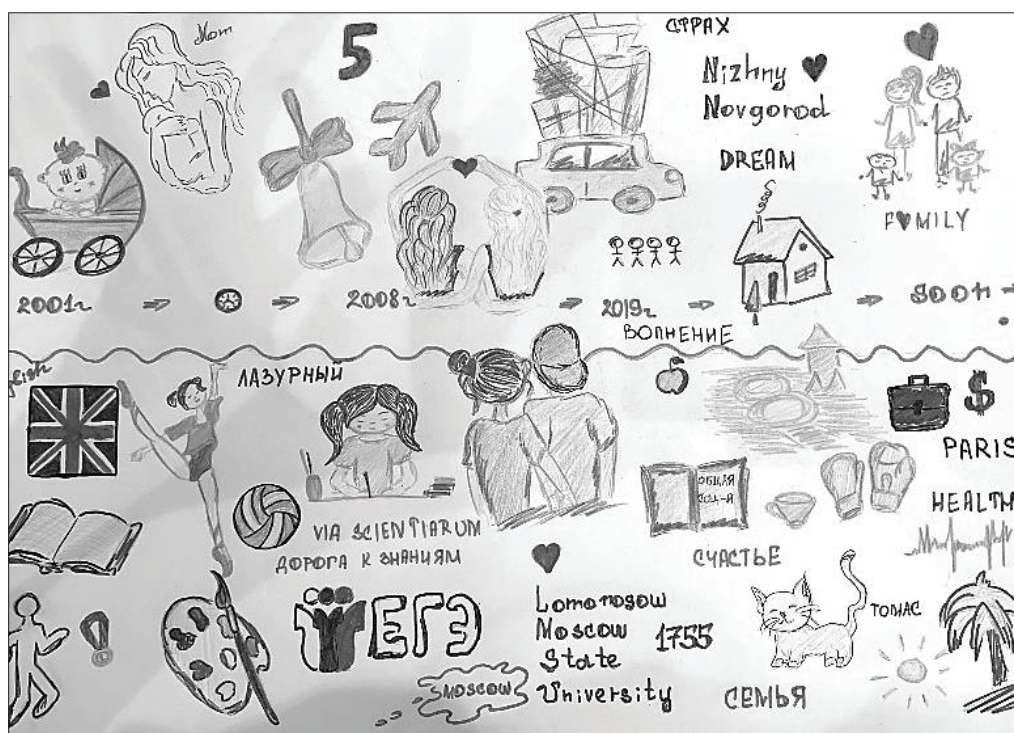 Mom
5
СТРАХ
Nizhny
Novgorod
DREAM
F♥MILY
2001г
2008г
2019г
SOON
ВОЛНЕНИЕ
ЛАЗУРНЫЙ
$
PARIS
ОБЩАЯ
СОЦ-Я
HEALTH
VIA SCIENTIARUM
ДОРОГА К ЗНАНИЯМ
СЧАСТЬЕ
ЕГЭ
Lomonosow
Moscow
State
University
1755
ТОМАС
MOSCOW
СЕМЬЯ